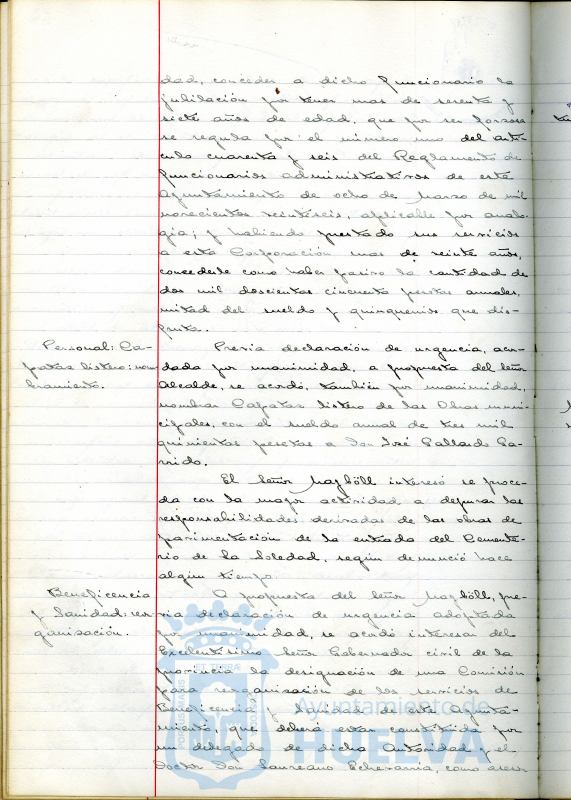 dad, conceder a dicho funcionario la
jubilación por tener mas de sesenta y
siete años de edad, que por ser forzosa
se regula por el número uno del artí-
culo cuarenta y seis del Reglamento de
funcionarios administrativos de este
Ayuntamiento de ocho de Marzo de mil
novecientos veintiseis, aplicable por analo-
gía; y habiendo prestado sus servicios
a esta Corporación mas de veinte años,
concederle como haber pasivo la cantidad de
dos mil doscientas cincuenta pesetas anuales,
mitad del sueldo y quinquenios que dis-
fruta.
Personal: Ca-
pataz listero: nom-
bramiento.
Previa declaración de urgencia, acor-
dada por unanimidad, a propuesta del señor
Alcalde, se acordó, también por unanimidad,
nombrar Capataz listero de las Obras muni-
cipales, con el sueldo anual de tres mil
quinientas pesetas a Don José Gallardo Ga-
rrido.
El señor interesó se proce-
da con la mayor actividad a depurar las
responsabilidades derivadas de las obras de
pavimentación de la entrada del Cemente-
rio de la Soledad, según denunció hace
algún tiempo.
Beneficencia
y Sanidad: reor-
ganización.
A propuesta del señor pre-
via declaración de urgencia adoptada
por unanimidad, se acordó interesar del
Excelentísimo Señor Gobernador civil de la
provincia la designación de una Comisión
para reorganización de los servicios de
Beneficencia y Sanidad de este Ayunta-
miento, que deberá estar constituida por
un delegado de dicha Autoridad y el
Doctor Don Laureano Echevarria, como asesor
Ayuntamiento de
HUELVA